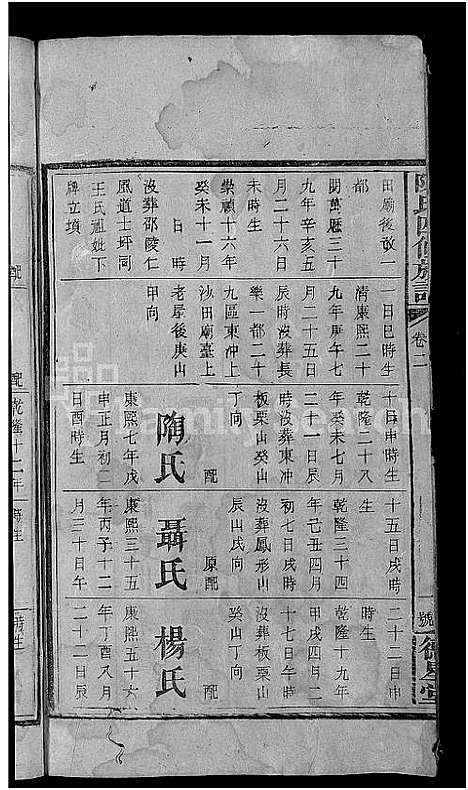 陳氏四修族譜
卷二
號
德星堂
田廟後敬一
都
明萬曆三十
九年辛亥五
月二十六日
未時生
崇禎十六年
癸未十一月
日時
沒葬邵陵仁
風道士坪同
王氏祖妣下
碑立項
一日巳時生
清康熙二十
九年庚午七
月二十五日
辰時沒葬長
樂一都二十
九區東沖上
沙田廟臺上
老屋後庚山
甲向
十日申時生
乾隆二十八
年癸未七月
二十一日辰
時沒葬東沖
板栗山癸山
丁向
配
陶氏
康熙七年戊
申正月初二
日酉時生
十五日戌時
生
乾隆三十四
年己丑四月
初七日戌時
沒葬鳳形山
辰山戌向
原配
聶氏
康熙三十五
年丙子十二
月三十日午
二十二日申
時生
乾隆十九年
甲戌四月二
十七日戌時
沒葬板栗山
癸山丁向
配
楊氏
康熙五十六
年丁酉八月
二十二日辰
配
配
乾隆十二年
時生